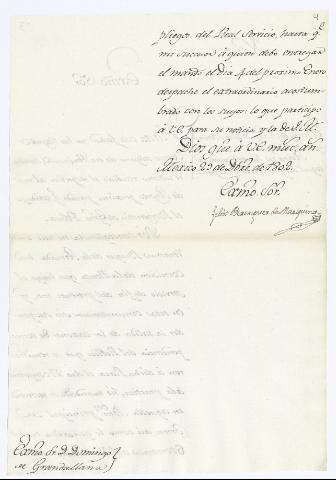 pliegos del Real Servicio, hasta q.e
mi succesor à quien debo entregar
el mando el dia 4 del proximo Enero
despache el extraordinario acostum-
brado con los suyos: lo que participo
à V.E. para su noticia y la de S.M.
Dios gue. à V.E. muc.s an.s
Mexico 29 de Dbre. de 1802.
Exmo. Sor.
Felix Berenguer de Marquina
Exmo Sr. D. Domingo
de Grandallana